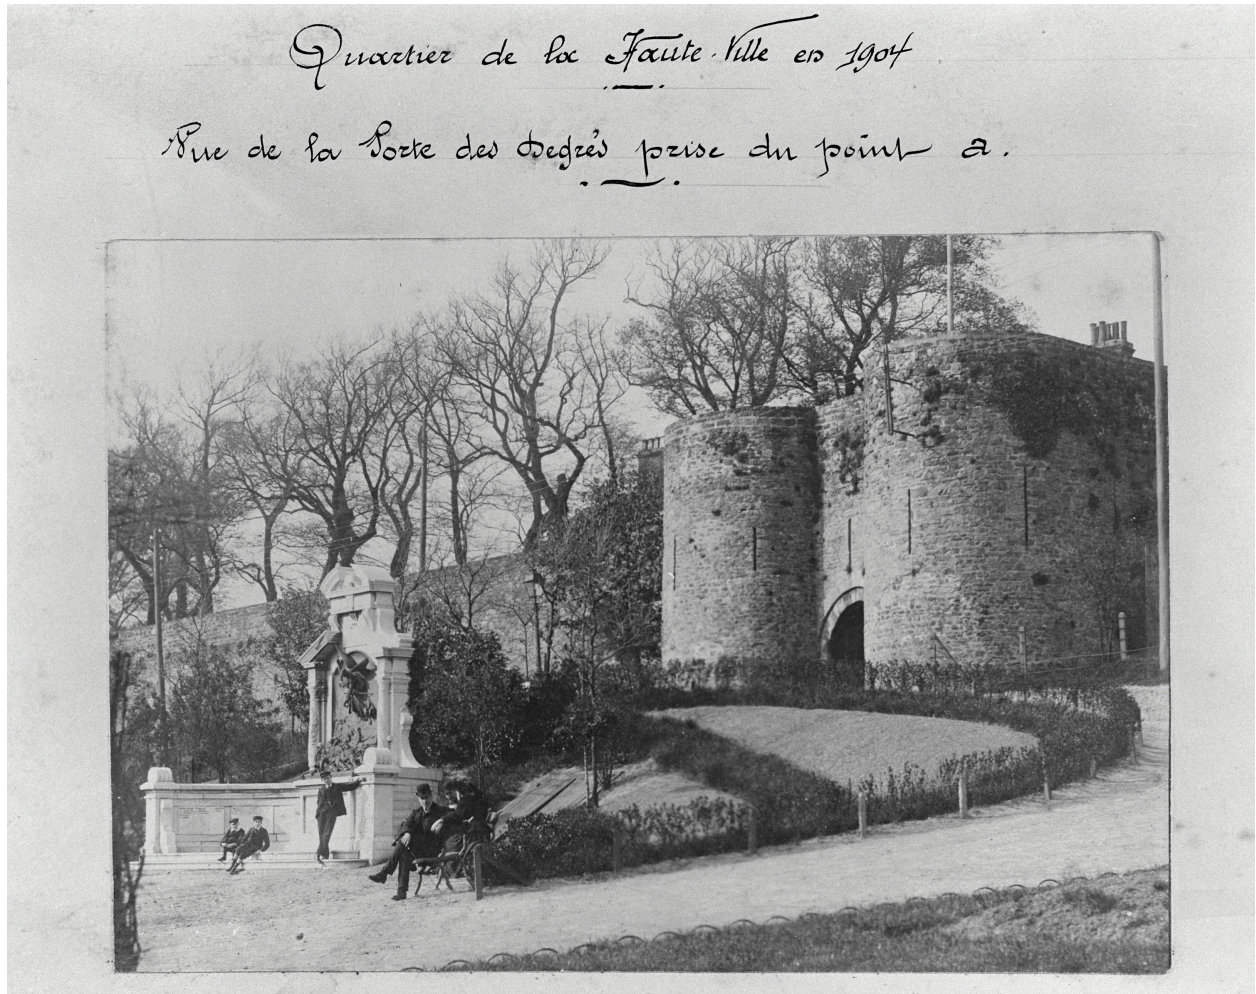 Quartier de la Haute-Ville en 1904
Vue de la Porte des Degrés prise du point a.